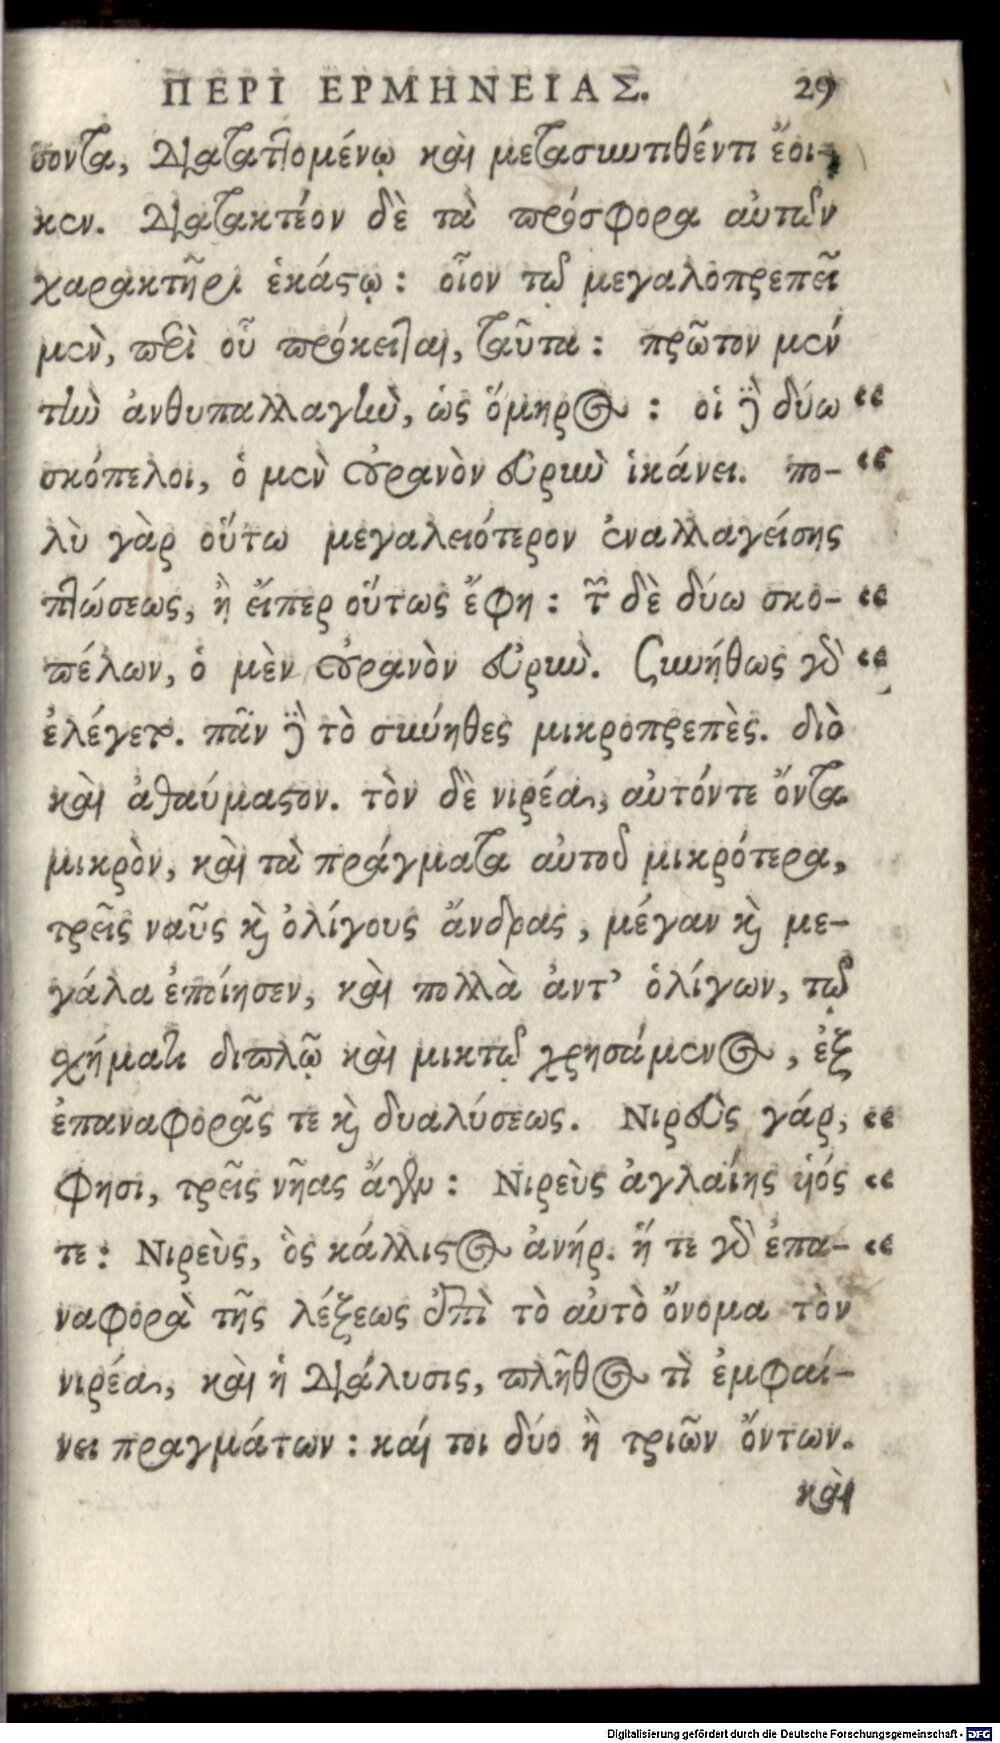 ΠΕΡΙ ΕΡΜΗΝΕΙΑΣ. 29
σοντα, διαταττομένῳ καὶ μετασκευτιθέντι ἔοι-
κεν. διατακτέον δὲ τὰ πρόσφορα αὐτῶν
χαρακτῆρι ἑκάστῳ : οἷον τῷ μεγαλοπρεπεῖ
μὲν, περὶ οὗ πρόκειται, ταῦτα : πρῶτον μέν
τὴν ἀνθυπαλλαγὴν, ὡς ὅμηρος : οἱ δὲ δύω “
σκόπελοι, ὁ μὲν οὐρανὸν εὐρὺν ἱκάνει. πο- “
λὺ γὰρ οὕτω μεγαλειότερον ἐναλλαγείσης
πτώσεως, ἢ εἴπερ οὕτως ἔφη : τῶν δὲ δύω σκο- “
πέλων, ὁ μὲν οὐρανὸν εὐρὺν. Συνήθως γὰρ “
ἐλέγετο. πᾶν δὲ τὸ σκύηθες μικροπρεπὲς. διὸ
καὶ ἀθαύμαστον. τὸν δὲ νιρέα, αὐτόντε ὄντα
μικρὸν, καὶ τὰ πράγματα αὐτοῦ μικρότερα,
τρεῖς ναῦς καὶ ὀλίγους ἄνδρας, μέγαν καὶ με-
γάλα ἐποίησεν, καὶ πολλὰ ἀντ’ ὀλίγων, τῷ
σχήματι διπλῷ καὶ μικτῷ χρησάμενος, ἐξ
ἐπαναφορᾶς τε καὶ δυαλύσεως. Νιρεὺς γάρ, “
φησι, τρεῖς νῆας ἄγεν : Νιρεὺς ἀγλαΐης ὑός “
τε : Νιρεὺς, ὃς κάλλιστος ἀνήρ. ἥ τε γὰρ ἐπα- “
ναφορὰ τῆς λέξεως ἐπὶ τὸ αὐτὸ ὄνομα τὸν
νιρέα, καὶ ἡ διάλυσις, πλῆθος τὶ ἐμφαί-
νει πραγμάτων : καί τοι δύο ἢ τριῶν ὄντων.
καὶ
Digitalisierung gefördert durch die Deutsche Forschungsgemeinschaft - DFG